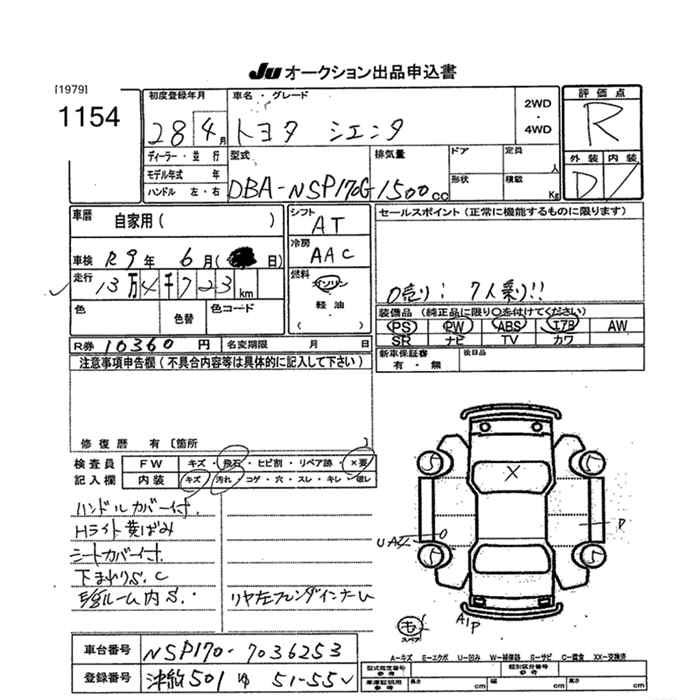 Ju オークション出品申込書
[1979]
1154
初度登録年月
28 4月
車名・グレード
トヨタ シエンタ
2WD
・
4WD
評価点
R
外装 内装
D
ディーラー・並行
モデル年式 年
ハンドル 左・右
型式
DBA-NSP170G
排気量
1500cc
ドア
形状
定員 人
積載 Kg
車歴
自家用( )
車検 R9年 6月( 日)
走行
13万4千723 km
色
色替
色コード
シフト
AT
冷房
AAC
燃料
ガソリン
軽油
( )
セールスポイント(正常に機能するものに限ります)
0売り! 7人乗り!!
装備品(純正品に限り○を付けてください)
PS PW ABS エアB AW
SR ナビ TV カワ
新車保証書
有・無
後日品
R券 10360円
名変期限 月 日
注意事項申告欄(不具合内容等は具体的に記入して下さい)
修復歴 有〔箇所 〕
検査員
記入欄
FW キズ・飛石・ヒビ割・リペア跡・×要
内装 キズ・汚れ・コゲ・穴・スレ・キレ・破レ
ハンドルカバー付.
Hライト黄ばみ
シートカバー付.
下まわりS.C
ルーム内S.
リヤ左フェンダインナーU
5
5
5
5
X
P
UA
A1P
も
スペア
A-キズ E-エクボ U-凹み W-補修器 S-サビ C-腐食 XX-交換済
車台番号 NSP170-7036253
登録番号 沖縄501 ゆ 51-55
型式指定番号
参考
類別区分番号
参考
車庫証明用
参考
長さ cm 幅 cm 高さ cm